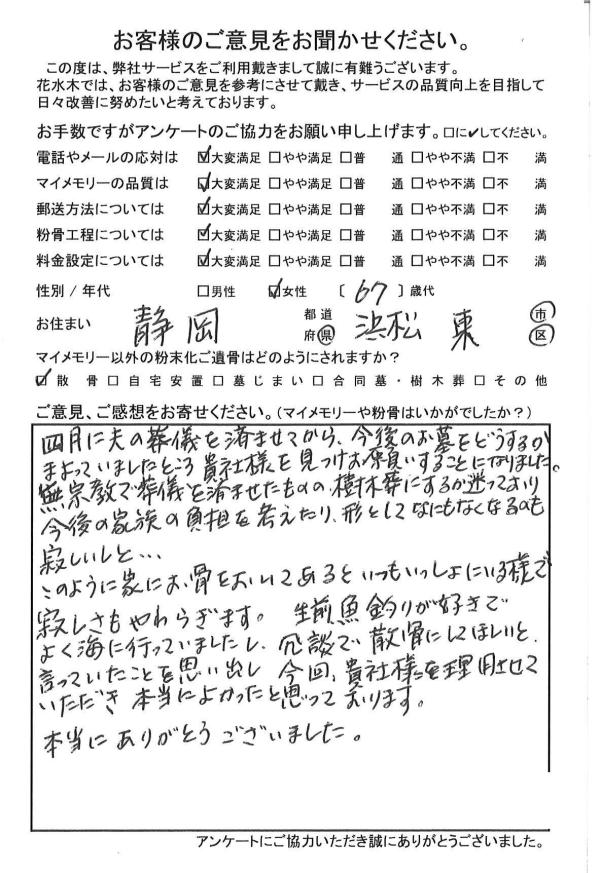 お客様のご意見をお聞かせください。
この度は、弊社サービスをご利用戴きまして誠に有難うございます。
花水木では、お客様のご意見を参考にさせて戴き、サービスの品質向上を目指して
日々改善に努めたいと考えております。
お手数ですがアンケートのご協力をお願い申し上げます。□に✔してください。
電話やメールの応対は ☑大変満足 □やや満足 □普 通 □やや不満 □不 満
マイメモリーの品質は ☑大変満足 □やや満足 □普 通 □やや不満 □不 満
郵送方法については ☑大変満足 □やや満足 □普 通 □やや不満 □不 満
粉骨工程については ☑大変満足 □やや満足 □普 通 □やや不満 □不 満
料金設定については ☑大変満足 □やや満足 □普 通 □やや不満 □不 満
性別 / 年代 □男性 ☑女性 〔 67 〕歳代
お住まい 静岡 都道府県 浜松 東 市区
マイメモリー以外の粉末化ご遺骨はどのようにされますか?
☑散 骨 □自宅安置 □墓じまい □合同墓・樹木葬 □その他
ご意見、ご感想をお寄せください。(マイメモリーや粉骨はいかがでしたか?)
四月に夫の葬儀を済ませてから、今後のお墓をどうするか
まよっていましたところ貴社様を見つけお願いすることになりました。
無宗教で葬儀を済ませたものの樹木葬にするか迷っており
今後の家族の負担を考えたり、形としてなにもなくなるのも
寂しいしと…
このように家にお骨をおいてあるといつもいっしょにいる様で
寂しさもやわらぎます。 生前魚釣りが好きで
よく海に行っていましたし、冗談で散骨にしてほしいと、
言っていたことを思い出し 今回、貴社様を理用させて
いただき 本当によかったと思っております。
本当にありがとうございました。
アンケートにご協力いただき誠にありがとうございました。